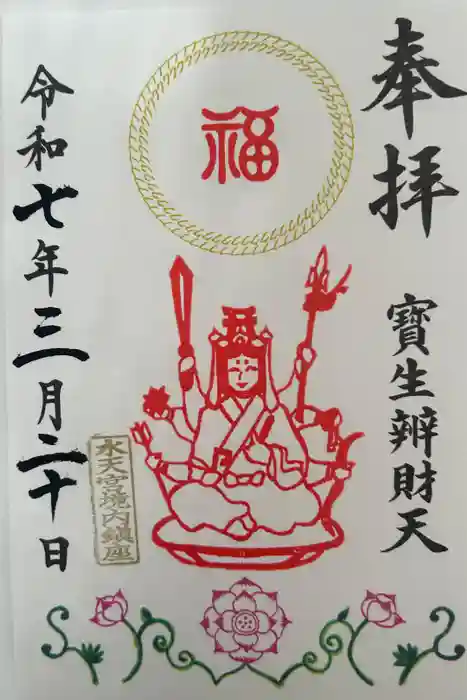 奉拝
寳生辨財天
福
水天宮境内鎮座
令和七年三月二十日